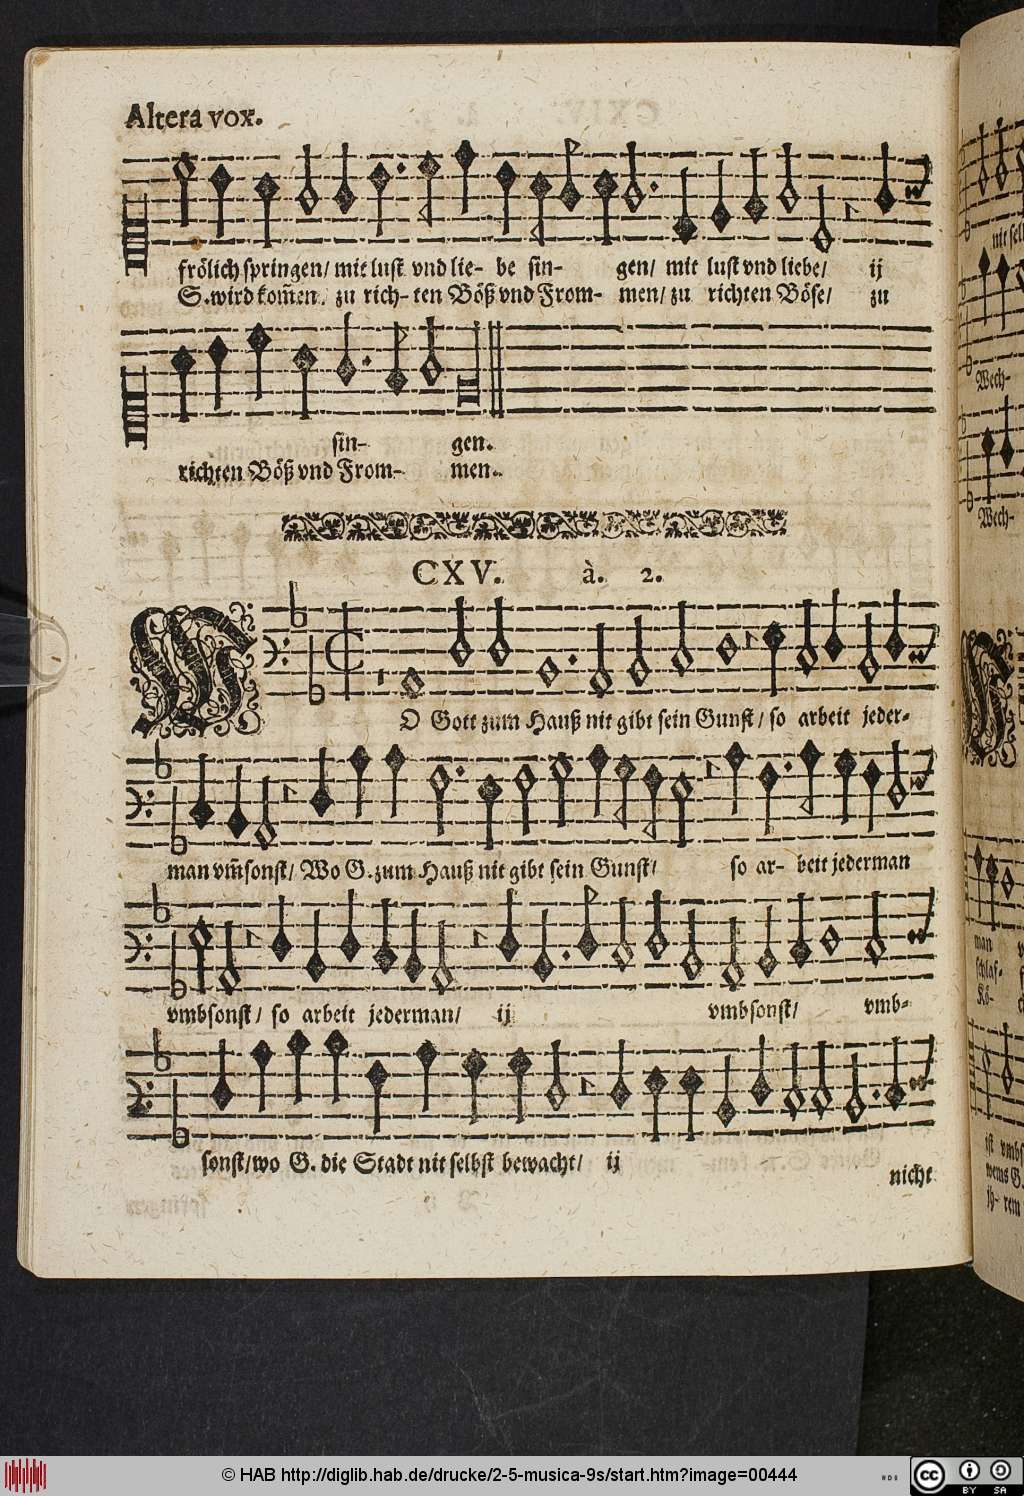 Altera vox.
frölich springen/ mit lust vnd lie- be sin- gen/ mit lust vnd liebe/ ij
S. wird kom̃en. zu rich- ten Böß vnd From- men/ zu richten Böse/ zu
sin- gen.
richten Böß vnd From- men.
CXV. à. 2.
WO Gott zum Hauß nit gibt sein Gunst/ so arbeit jeder-
man vm̃sonst/ Wo G. zum Hauß nit gibt sein Gunst/ so ar- beit jederman
vmbsonst/ so arbeit jederman/ ij vmbsonst/ vmb-
sonst/ wo G. die Stadt nit selbst bewacht/ ij
nicht
nit sel
Wech-
Wech-
man
schlaf-
Kö-
ist vmbs
wems G.
jh- rem
© HAB http://diglib.hab.de/drucke/2-5-musica-9s/start.htm?image=00444
cc BY SA